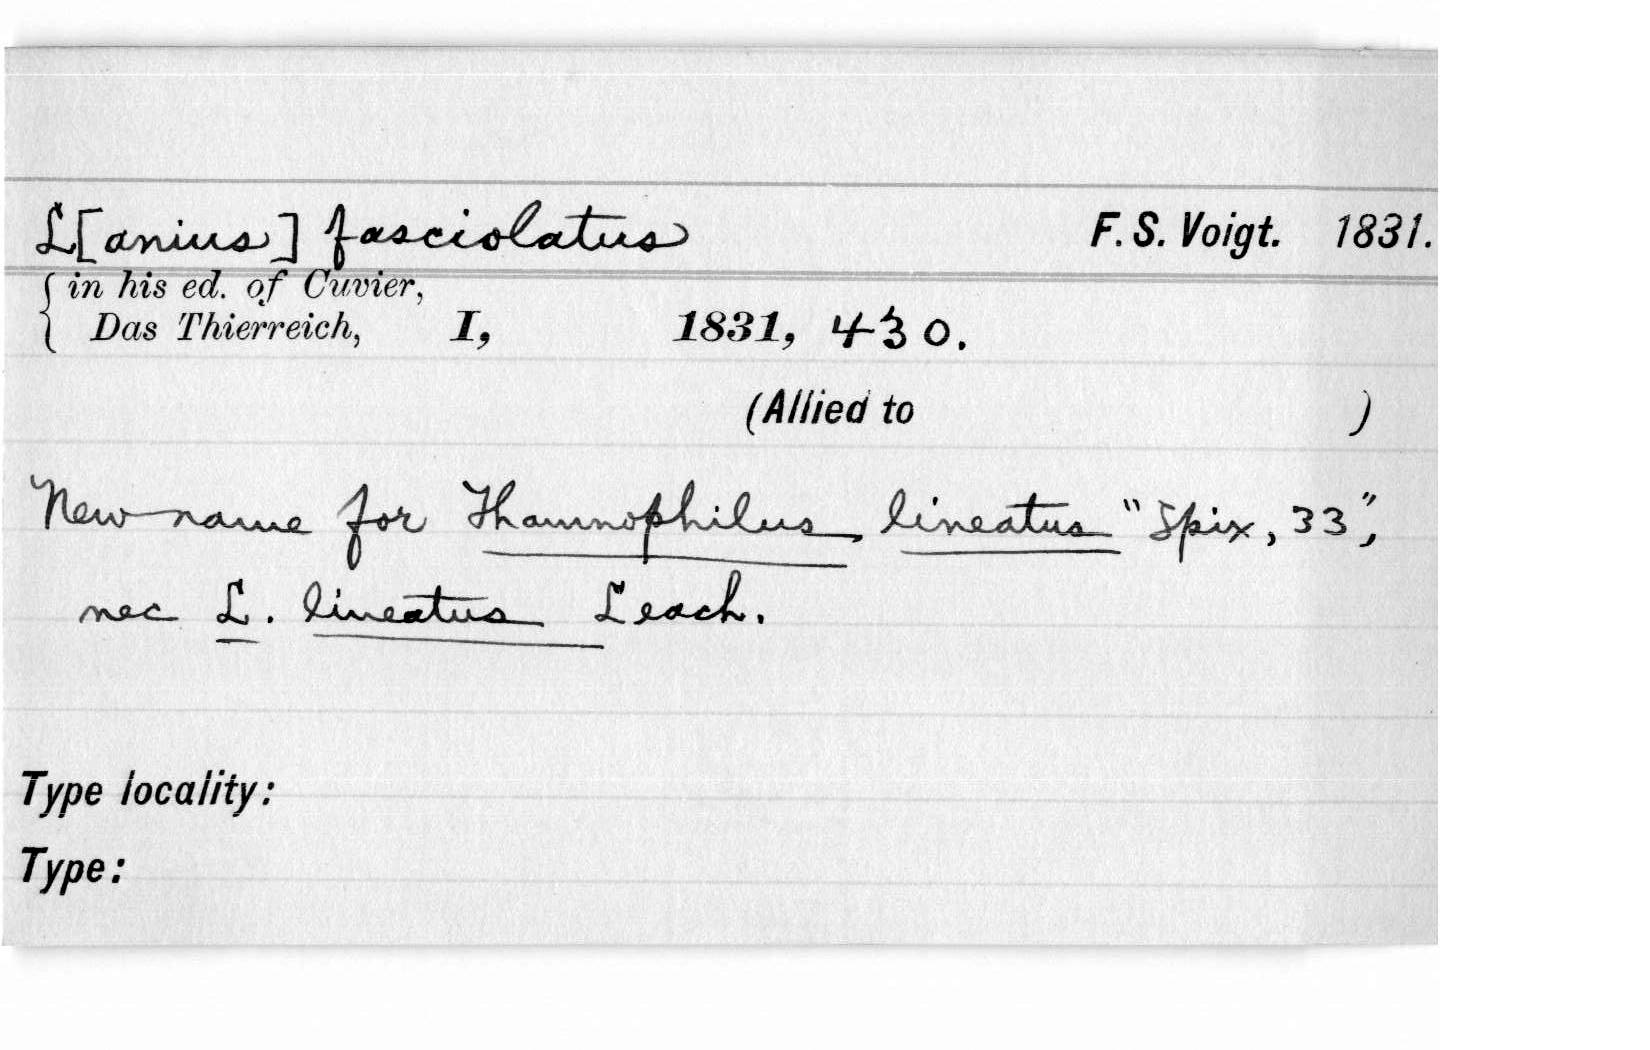 L[anius] fasciolatus F. S. Voigt. 1831.
in his ed. of Cuvier,
Das Thierreich, I, 1831, 430.
(Allied to )
New name for Thamnophilus lineatus "Spix, 33",
nec L. lineatus Leach.
Type locality:
Type: